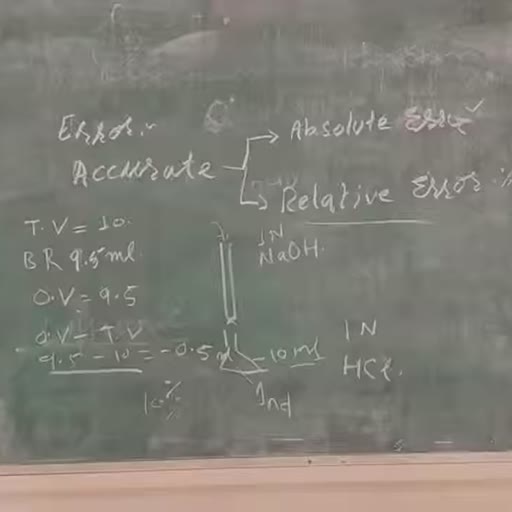 Error :-
Accurate
Absolute Error ✓
Relative Error :%
T.V = 10.
B R 9.5 ml.
O.V = 9.5
O.V - T.V
9.5 - 10 = -0.5 ml
10%
1N
NaOH.
10 ml
Ind
1N
HCl.